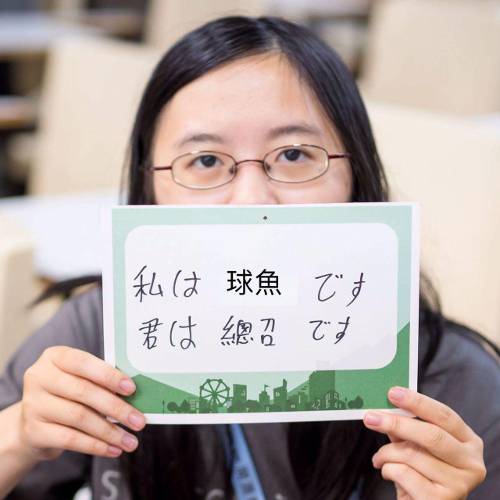 私は 球魚 です
君は 總召 です